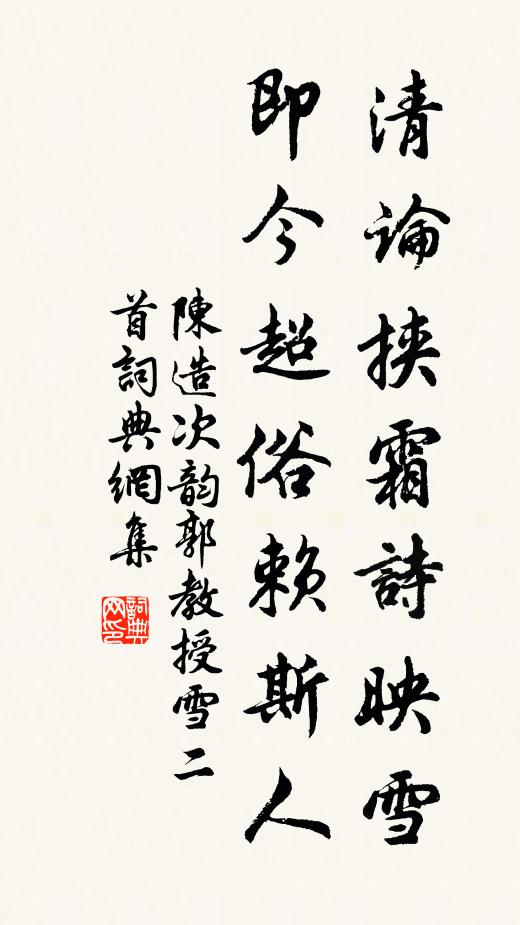 清論挾霜詩映雪
即今超俗賴斯人
陳造次韵郭教授雪二
首詞典網集
詞典
网印